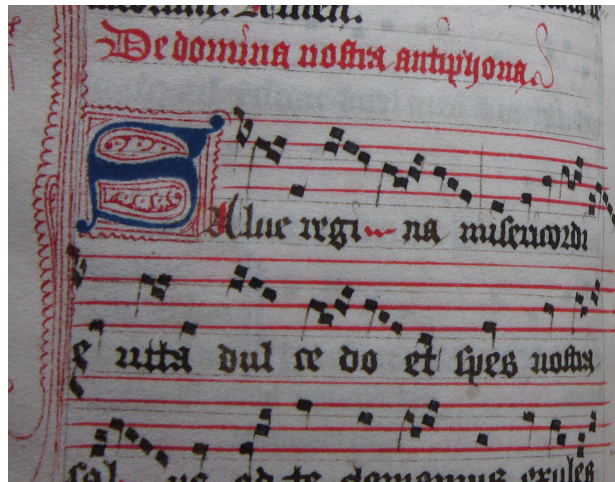 Amen.
De domina nostra antiphona.
Salue regina misericordi
e uita dul ce do et spes nostra
sal ue ad te clamamus exules